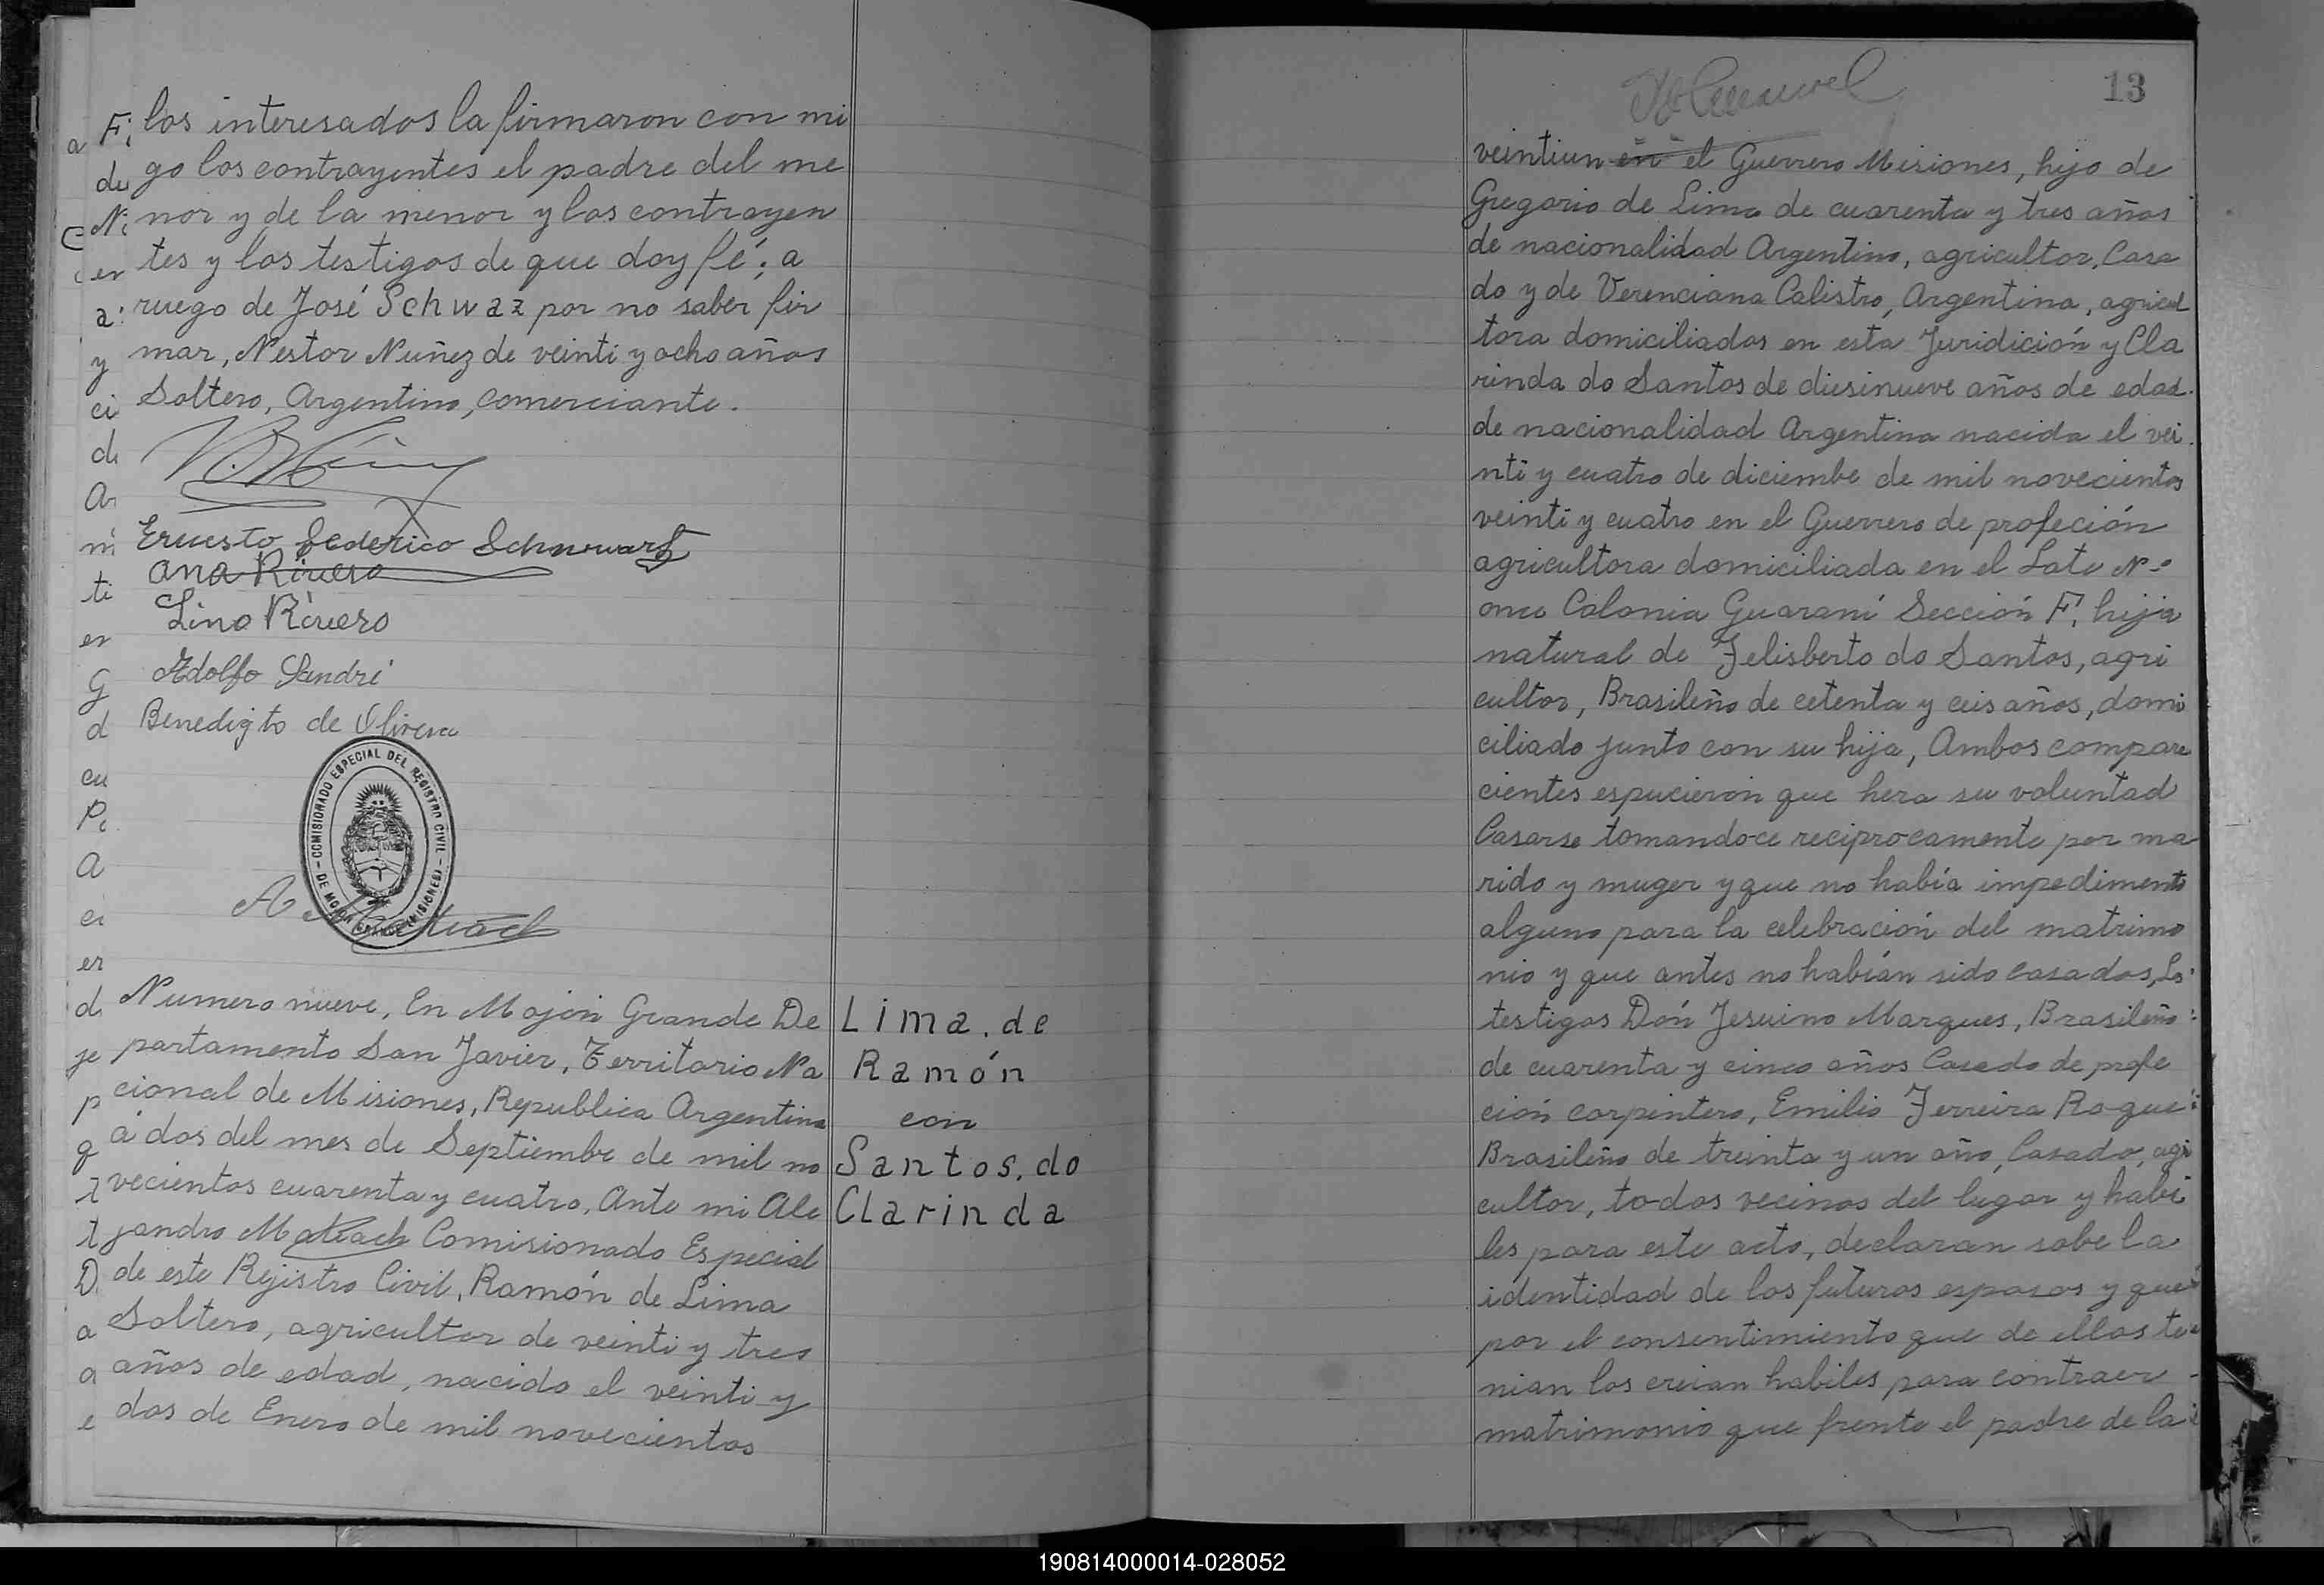 los interesados la firmaron con mi
go los contrayentes el padre del me
nor y de la menor y los contrayen
tes y los testigos de que doy fé; a
ruego de José Schwaz por no saber fir
mar, Nestor Nuñez de veinti y ocho años
Soltero, Argentino, comerciante.
Ernesto Federico Schwarz
Ana Rivero
Lino Rivero
Adolfo Sandri
Benedigto de Olivera
COMISIONADO ESPECIAL DEL REGISTRO CIVIL - DE MOJON GRANDE (MISIONES) -
Numero nueve, En Mojón Grande De
partamento San Javier, Territorio Na
cional de Misiones, Republica Argentina
á dos del mes de Septiembre de mil no
vecientos cuarenta y cuatro, Ante mi Ale
jandro Comisionado Especial
de este Rejistro Civil, Ramón de Lima
Soltero, agricultor de veinti y tres
años de edad, nacido el veinti y
dos de Enero de mil novecientos
Lima, de
Ramón
con
Santos, do
Clarinda
13
veintiun en el Guerrero Misiones, hijo de
Gregorio de Lima de cuarenta y tres años
de nacionalidad Argentino, agricultor, Casa
do y de Verenciana Calistro, Argentina, agricul
tora domiciliados en esta Juridición y Cla
rinda do Santos de diesinueve años de edad
de nacionalidad Argentina nacida el vei
nti y cuatro de diciembe de mil novecientos
veinti y cuatro en el Guerrero de profeción
agricultora domiciliada en el Lote Nº
once Colonia Guaraní Sección F, hija
natural de Felisberto do Santos, agri
cultor, Brasileño de cetenta y ceis años, domi
ciliado junto con su hija, Ambos compare
cientes espucieron que hera su voluntad
Casarse tomandoce reciprocamente por ma
rido y muger y que no había impedimento
alguno para la celebración del matrimo
nio y que antes no habían sido casados, Lo
testigos Dón Jesuino Marques, Brasileño
de cuarenta y cinco años Casado de profe
ción carpintero, Emilio Ferreira Roque
Brasileño de treinta y un año, Casado, agri
cultor, todos vecinos del lugar y habi
les para este acto, declaran sobe la
identidad de los futuros esposos y que
por el consentimiento que de ellos te
nian los creian habiles para contraer
matrimonio que frente el padre de la